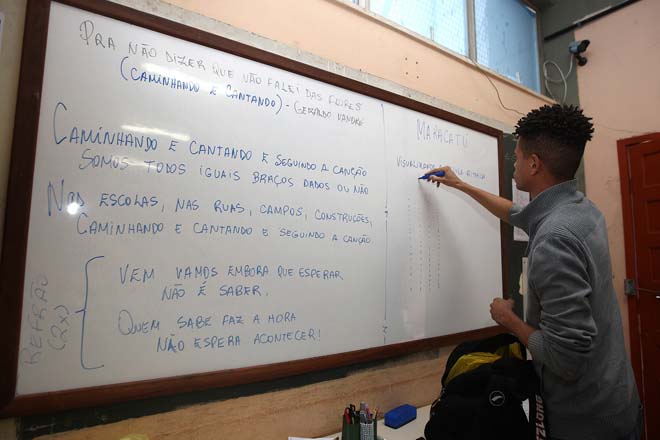 PRA NÃO DIZER QUE NÃO FALEI DAS FLORES
(CAMINHANDO E CANTANDO) - GERALDO VANDRÉ
CAMINHANDO E CANTANDO E SEGUINDO A CANÇÃO
SOMOS TODOS IGUAIS BRAÇOS DADOS OU NÃO
NAS ESCOLAS, NAS RUAS, CAMPOS, CONSTRUÇÕES,
CAMINHANDO E CANTANDO E SEGUINDO A CANÇÃO
REFRÃO
(2X)
VEM VAMOS EMBORA QUE ESPERAR
NÃO É SABER,
QUEM SABE FAZ A HORA
NÃO ESPERA ACONTECER!
MARACATÚ
VISUALIZANDO RÍTMICA